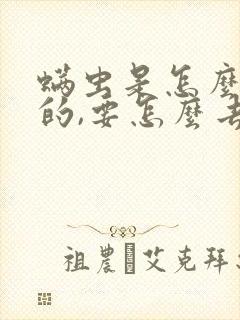 螨虫是怎麼
的,要怎麼去
祖農 艾克拜